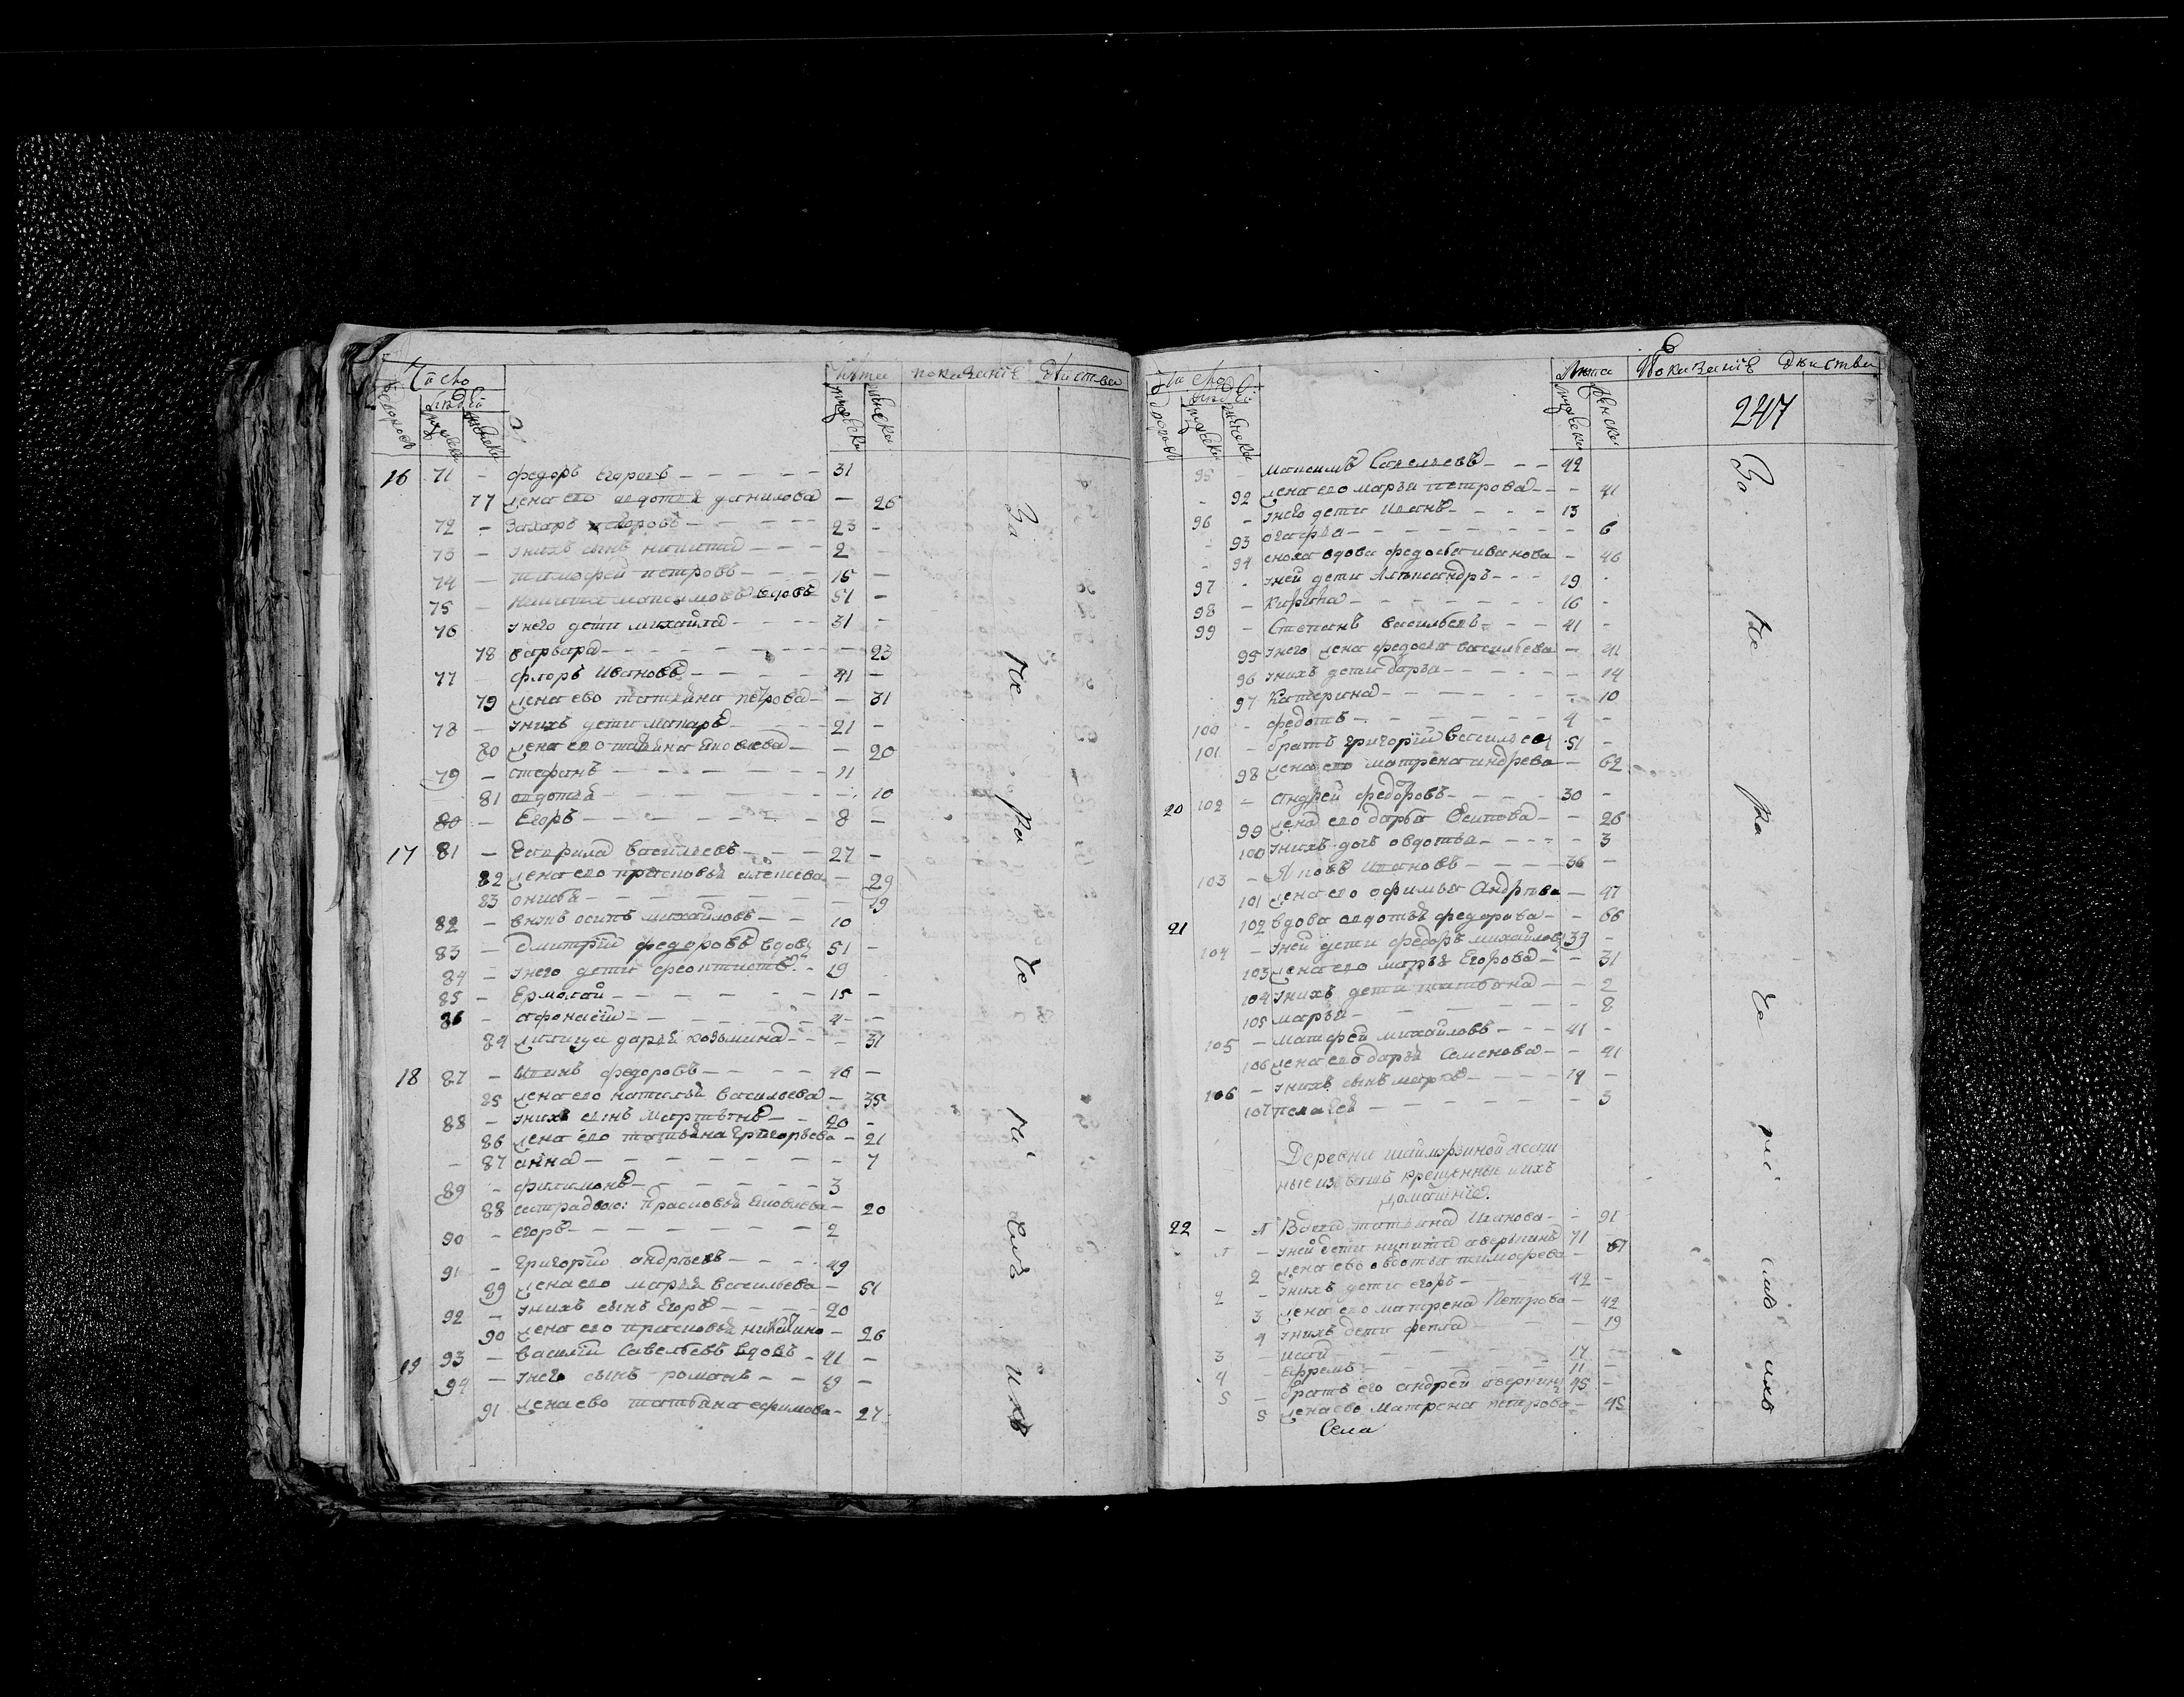 Число
людей
лѣта показаніе действа
16 71 - федоръ Егоровъ - 31
77 жена его авдотья данилова - 25
72 - Захаръ егоровъ - 23 -
73 - унихъ сынъ никита - 2
74 - тимофей петровъ - 15 -
75 - максимовъ вдовъ 51 -
76 унего дети михайла - 31 -
78 варвара - 23
77 - флоръ Ивановъ - 41 -
79 жена ево татьяна петрова - 31
78 - унихъ дети макаръ - 21 -
80 жена его татьяна яковлева - 20
79 - стефанъ - 11
81 авдотья - 10
80 - Егоръ - 8 -
17 81 - Гаврила васильевъ - 27 -
82 жена его прасковья алексева - 29
83 онисья - 19
82 - внукъ осипъ михайловъ - 10
83 - дмитрiй федоровъ вдовъ 51 -
84 - унего дети феоктистъ - 19
85 - Ермолай - 15 -
86 - афонасiй - 4 -
84 дарья козьмина - 31
18 87 - Иванъ федоровъ - 46 -
85 жена его наталья васильева - 35
88 - унихъ сынъ мартынъ - 20 -
86 жена его татьяна григорьева - 21
- 87 анна - 7
89 - филимонъ - 3
88 прасковья яковлева - 20
90 - егоръ - 2
91 - Григорiй андреевъ - 49
89 жена его марья васильева - 51
92 - унихъ сынъ Егоръ - 20
90 жена его прасковья никитина - 26
19 93 - василiй Савельевъ вдовъ - 41 -
94 - унего сынъ романъ - 19 -
91 жена ево татьяна ефимова - 27
За не ра че ні емъ ихъ
6
Число
людей
Лѣта Показанiе дѣйства
247
95 - максимъ Савельевъ - 42
- 92 жена его марья петрова - 41
96 - унего дети Иванъ - 13
- 93 огафья - 6
- 94 сноха вдова федосья иванова - 46
97 - уней дети Александръ - 19 -
98 - Кирила - 16 -
99 - Степанъ васильевъ - 41 -
95 унего жена федосья васильева - 41
96 унихъ дети дарья - 14
97 Катерина - 10
100 - федотъ - 4 -
101 - братъ григорiй васильевъ 51 -
98 жена его матрена андрева - 62
20 102 - андрей федоровъ - 30 -
99 жена его дарья Осипова - 26
100 унихъ дочь овдотья - 3
103 - Яковъ Ивановъ - 36 -
101 жена его офимья Андрѣва - 47
21 102 вдова авдотья федорова - 66
104 - уней дети федоръ михайловъ 39 -
103 жена его марья Егорова - 31
104 унихъ дети татьяна - 2
105 марья - 8
105 - матфей михайловъ - 41 -
106 жена его дарья Семенова - 41
106 - унихъ сынъ - 14 -
107 пелагея - 3
Деревни шаймурзиной ясаш
ные из крещенные и ихъ
домашнiе.
22 - 1 Вдова татьяна Иванова - 91
1 - уней дети никита аверкинъ 71
2 жена ево овдотья тимофева -
2 - унихъ дети егоръ - 42 -
3 жена его матрена Петрова - 42
4 унихъ дети фекла - 19
3 исай - 17 -
4 - Ефремъ - 11 -
5 - братъ его андрей аверкинъ 45 -
5 жена ево матрена петрова - 45
Села
За не ра че ні емъ ихъ